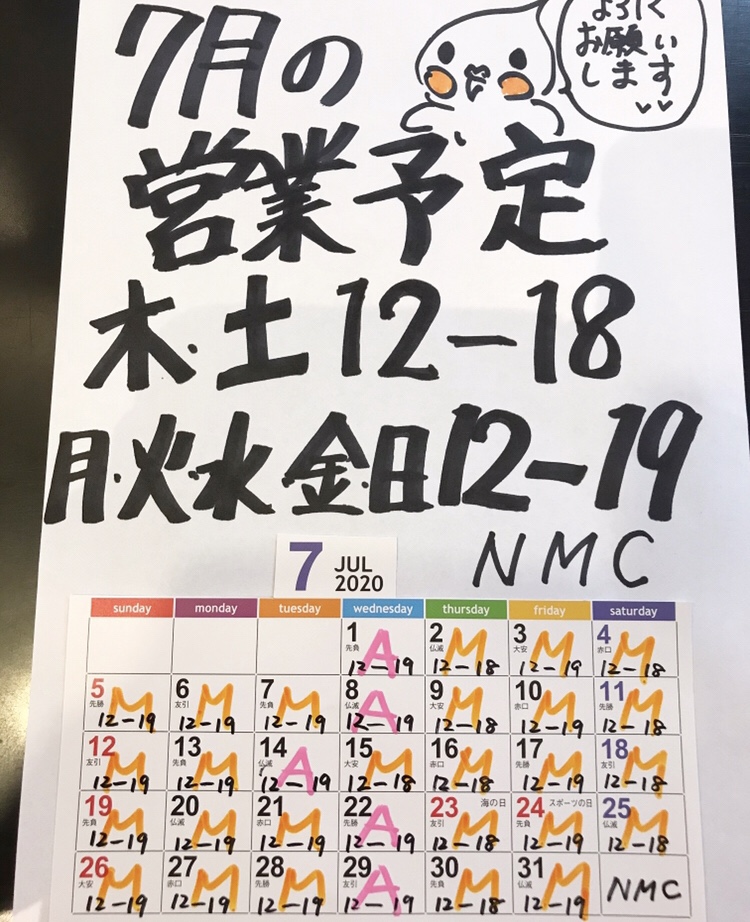 7月の
よろしく
お願い
します
営業予定
木・土12-18
月・火・水金・日12-19
NMC
7 JUL
2020
sunday monday tuesday wednesday thursday friday saturday
1 2 3 4
先負 A 仏滅 M 大安 M 赤口 M
12-19 12-18 12-19 12-18
5 6 7 8 9 10 11
先勝 M 友引 M 先負 M 仏滅 A 大安 M 赤口 M 先勝 M
12-19 12-19 12-19 12-19 12-18 12-19 12-18
12 13 14 15 16 17 18
友引 M 先負 M 仏滅 A 大安 M 赤口 M 先勝 M 友引 M
12-19 12-19 12-19 12-18 12-18 12-19 12-18
19 20 21 22 23 海の日 24 スポーツの日 25
先負 M 仏滅 M 赤口 M 先勝 A 友引 M 先負 M 仏滅 M
12-19 12-19 12-19 12-19 12-18 12-19 12-18
26 27 28 29 30 31
大安 M 赤口 M 先勝 M 友引 A 先負 M 仏滅 M NMC
12-19 12-19 12-19 12-19 12-18 12-19